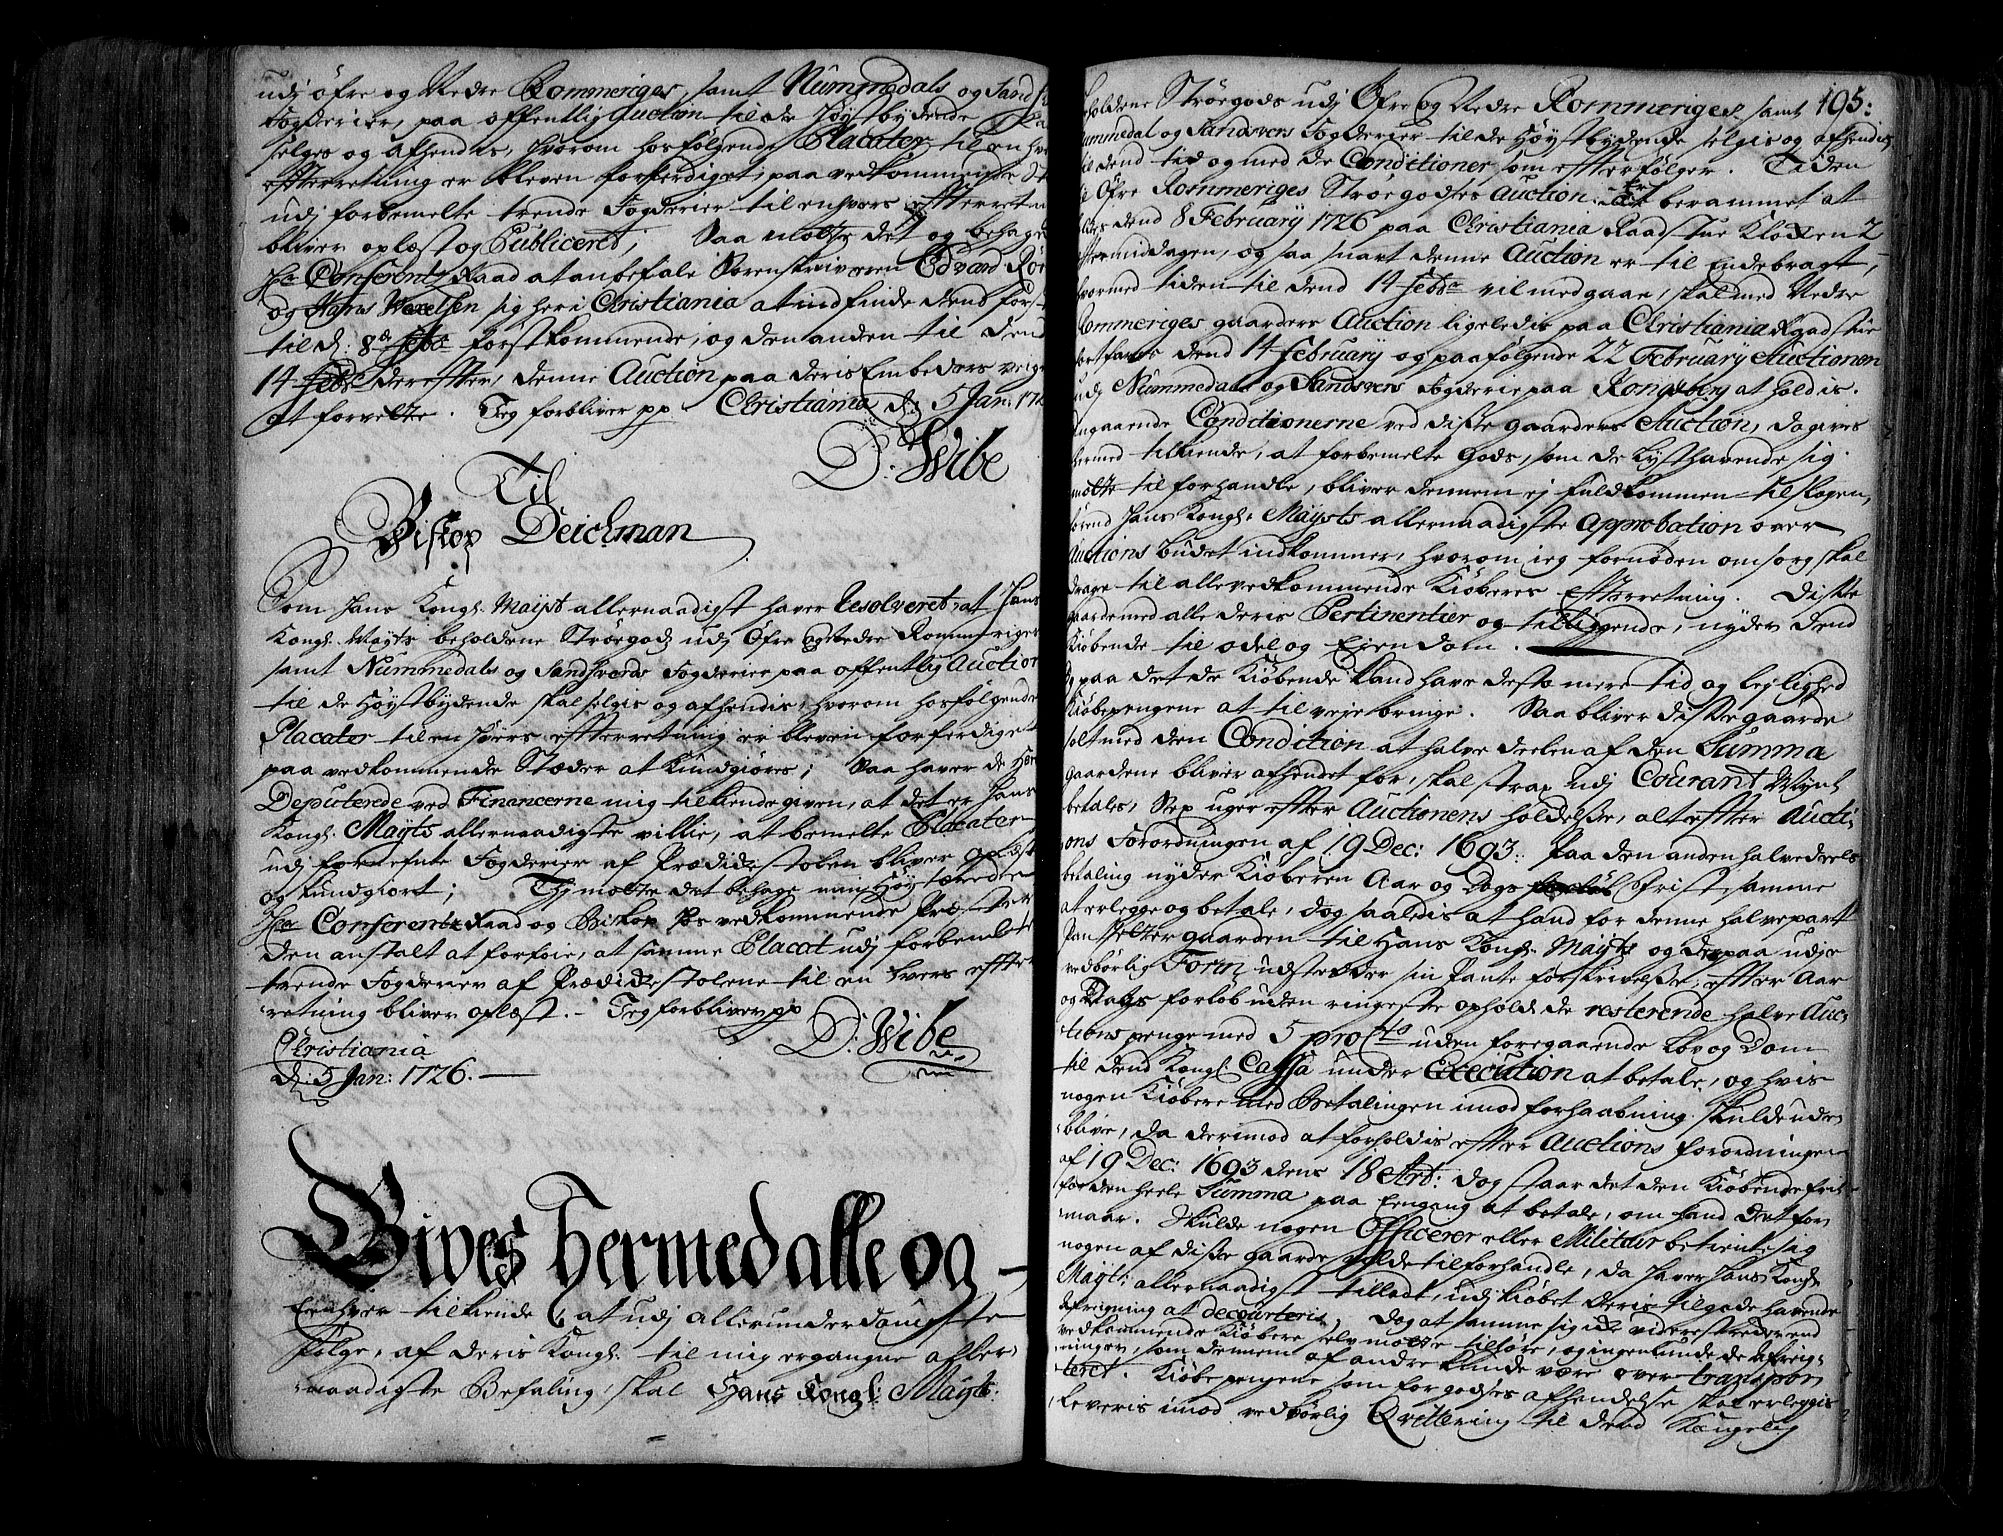 udj øfre og Nedre Rommeriges, samt Nummedals og Sands
fogderier, paa offentlig Auction til de Høystbydende
selges og afhendes, hvorom hosfølgende Placater til en hver
effterretning er bleven forferdiget, paa vedkommende
udj forbemelte trende fogderier til enhvers effterret
bliver oplæst og Publiceret; Saa motte det og behage
Hr Conferentz Raad at anbefale Sorenskriveren Edvard Rø
og Hans Wexelsen sig her i Christiania at indfinde dend først
til d. 8de Febr førstkommende, og den anden til den
14 Febr dereffter, denne Auction paa deris Embeders veigne
at forrette. Jeg forbliver pp Christiania d: 5 Jan: 172
D: Wibe
Til
Biskop Deichman
Som Hans Kongl. Mayst allernaadigst haver Resolveret, at Hans
Kongl. Mayts beholdene Strøegods udj Øfre og Nedre Rommeriges
samt Nummedals og Sandsverds fogderier paa offentlig Auction
til de Høystbydende skal selgis og afhendis, hvorom hosfølgende
Placater til en hvers effterretning er bleven forferdiget
paa vedkommende Stæder at kundgiøres; Saa haver de Herr
Deputerede ved Financerne mig tilkiendegiven, at det er Hans
Kongl. Mayts allernaadigste villie, at bemelte Placater
udj fornefnte fogderier af Prædickestolen bliver oplæst
og kundgiort; Thj motte det behage min Høyærede
Hr Conferentz Raad og Biskop hos vedkommende Præster
den anstalt at forføie, at samme Placat udj forbemelte
trende fogderier af Prædickestolene til en hvers effter
retning bliver oplæst. - Jeg forbliver pp
D: Wibe
Christiania
d: 5 Jan: 1726.
Gives Hermed alle og
Enhver tilkiende, at udj allerunderdanigste
følge, af deris Kongl. til mig ergangne aller
naadigste Befaling, skal Hans Kongl: Mayts:
195:
beholdene Strøegods udj Øfre og Nedre Rommeriges samt
Nummedal og Sandsvers fogderier til de Høystbydende selgis og afhendis
til dend tid og med de Conditioner som effterfølger. Tiden
til Øfre Rommeriges Strøegodses Auction er berammet at
holdes dend 8 February 1726 paa Christiania Raadstue Klokken 2
effter middagen, og saa snart denne Auction er til Endebragt,
hvormed tiden til dend 14 Febr vil medgaae, skal med Nedre
Rommeriges gaarders Auction ligeledis paa Christiania Raadstue
fortfares dend 14 February og paafølgende 22 February Auctionen
udj Nummedals og Sandsvers fogderie paa Kongsberg at holdis.
Angaaende Conditionerne ved disse gaarders Auction, da gives
hermed tilkiende, at forbemelte Gods, som de Lysthavende sig
motte tilforhandle, bliver dennem ej fuldkommen tilslagen,
førend Hans Kongl. Mayts allernaadigste Approbation over
Auctions budet indkommer, hvorom ieg fornøden omsorg skal
drage til alle vedkommende Kiøberes effterretning. Disse
Gaarde med alle deris Pertinentier og tilliggende, nyder dend
Kiøbende til odel og Eiendom.
Og paa det de Kiøbende kand have desto mere tid og leylighed
Kiøbepengene at tilvejebringe. Saa bliver disse gaarde
solt med den Condition at halve deelen af den Summa
Gaardene bliver afhendet for, skal strax udj Courant Mynt
betales, Sex uger effter Auctionens holdelse, alt effter Aucti
ons forordningen af 19 Dec: 1693. Paa den anden halve deels
betaling nyder Kiøberen Aar og Dags frist, samme
at erlegge og betale, dog saaledis at hand for denne halvepart
Pantsetter gaarden til Hans Kongl. Mayts og derpaa udj
vedbørlig Form udsteder sin Pante forskrivelse, effter Aar
og Dags forløb uden ringeste ophold de resterende halve Auc
tions penge med 5 pro Cto uden foregaaende Lov og Dom
til dend Kongl. Cassa under Execution at betale, og hvis
nogen Kiøbere med Betalingen imod forhaabning skulde ude
blive, da derimod at forholdis effter Auctions forordningen
af 19 Dec: 1693 dens 18 Art: dog staar det den Kiøbende frit
for den heele Summa paa Eengang at betale, om hand det for
maar. Skulde nogen Officerer eller Militair betiente sig
nogen af disse gaarde vilde tilforhandle, da haver Hans Kongl.
Mayt: allernaadigst tilladt, udj kiøbet deris tilgodehavende
afreigning at decourtere, dog at samme sig icke videre strecker end
vedkommende Kiøbere selv motte tilhøre, og ingenlunde de afreig
ninger, som dennem af andre kunde være over transpor
teret. Kiøbepengene som for godses afhendelse skal erleggis
Leveris imod vedbørlig Qvittering til dend Kongelig